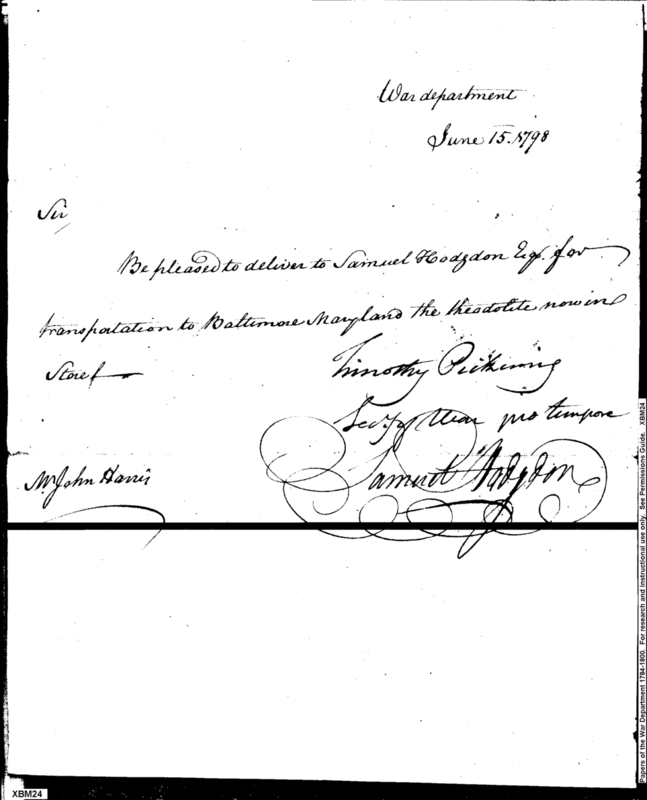 War department
June 15. 1798
Sir
Be pleased to deliver to Samuel Hodgdon Esqr. for
transportation to Baltimore Maryland the theodolite now in
Store
Timothy Pickering
Secy of War pro tempore
Samuel Hodgdon
Mr John Harris
XBM24
Papers of the War Department 1784-1800. For research and instructional use only. See Permissions Guide. XBM24